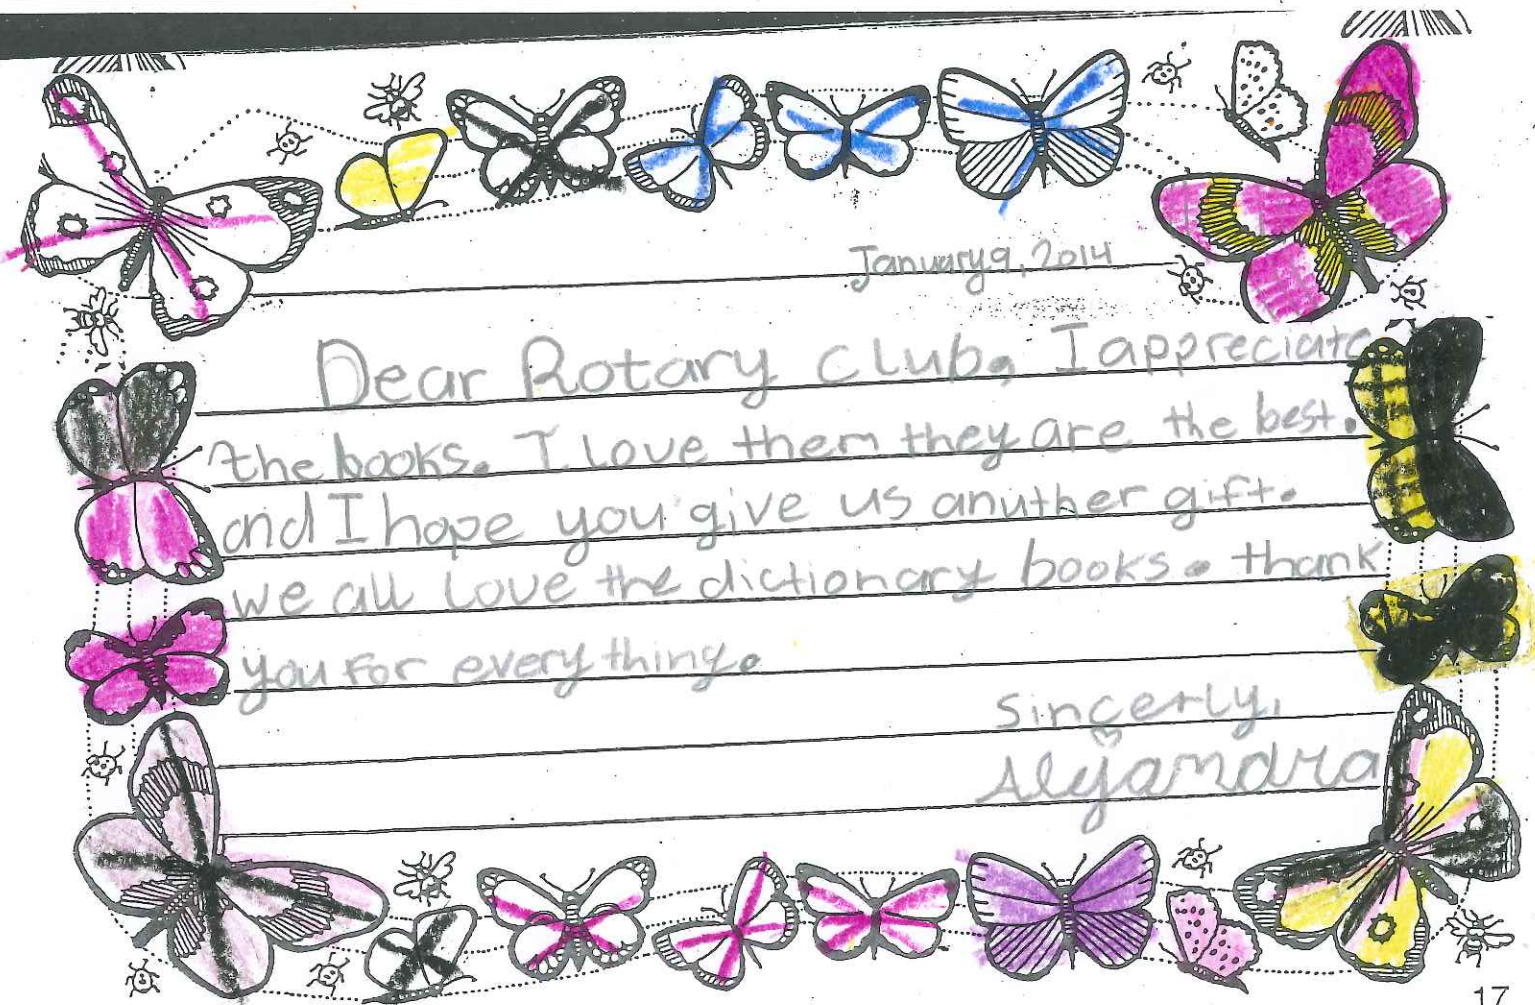 January 9, 2014
Dear Rotary club, I appreciate
the books. I love them they are the best.
and I hope you give us anuther gift.
we all love the dictionary books. thank
you for every thing.
Sincerly,
Alejandra
17